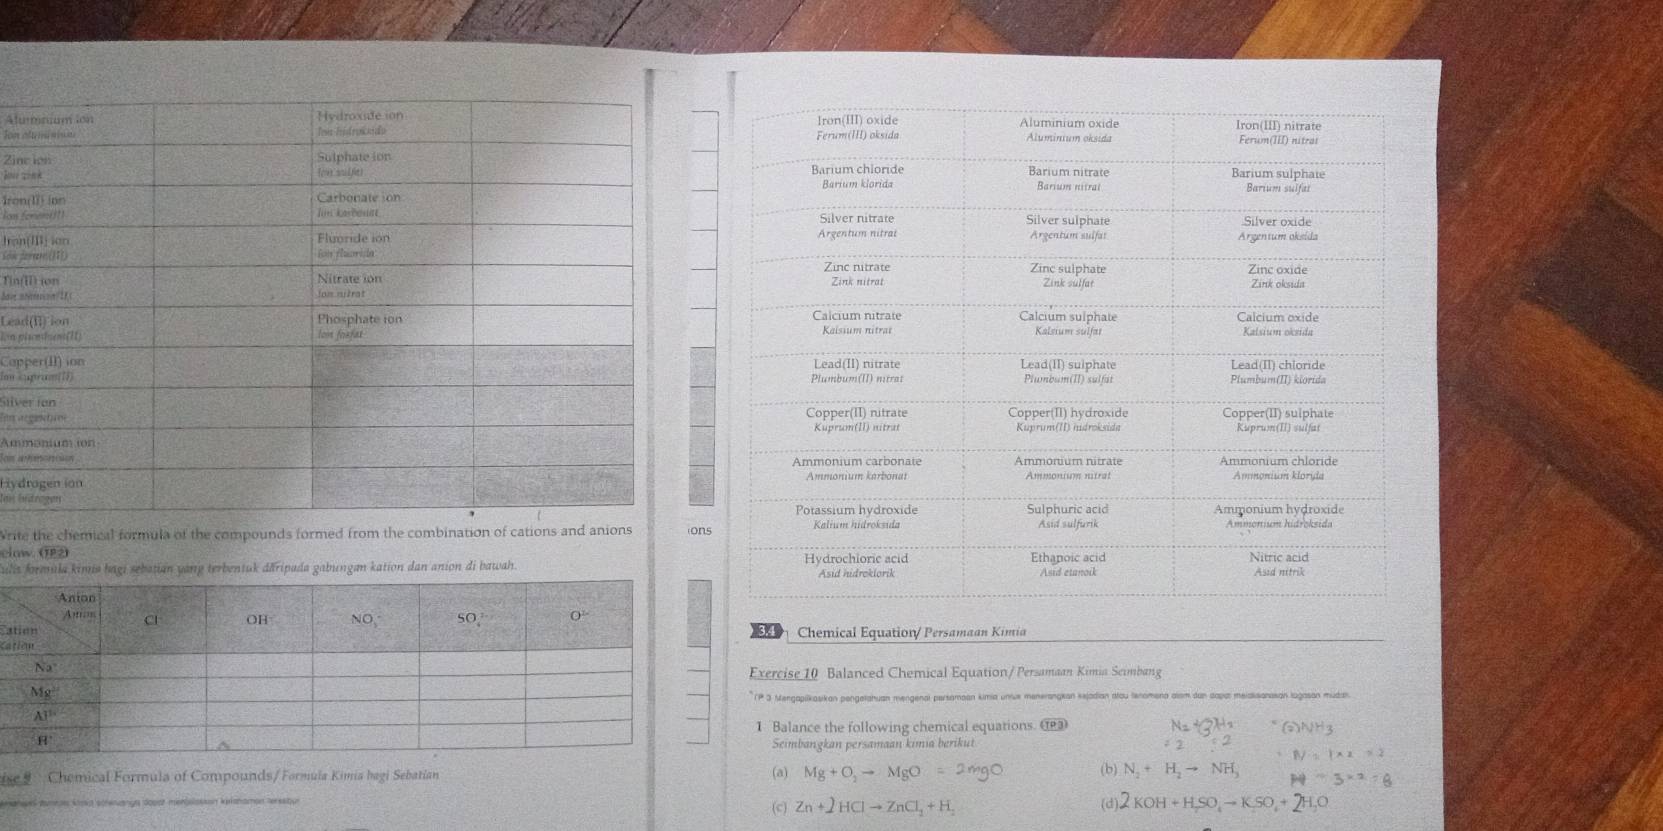 Aluminium ion Hydroxide ion
Ion aluminium Ion hidroksida
Zinc ion Sulphate ion
Ion zink Ion sulfat
Iron(II) ion Carbonate ion
Ion ferum(II) Ion karbonat
Iron(III) ion Fluoride ion
Ion ferum(III) Ion fluorida
Tin(II) ion Nitrate ion
Ion nitrat
Lead(II) ion Phosphate ion
Ion plumbum(II) Ion fosfat
Copper(II) ion
Ion kuprum(II)
Silver ion
Ion argentum
Ammonium ion
Ion ammonium
Hydrogen ion
Ion hidrogen
Write the chemical formula of the compounds formed from the combination of cations and anions
elow. (TP2)
Tulis formula kimia bagi sebatian yang terbentuk daripada gabungan kation dan anion di bawah.
Anion
Anion
Cation
Kation
Cl⁻ OH⁻ NO₃⁻ SO₄²⁻ O²⁻
Na⁺
Mg²⁺
Al³⁺
H⁺
ise 9 Chemical Formula of Compounds/Formula Kimia bagi Sebatian
ions
Iron(III) oxide Aluminium oxide Iron(III) nitrate
Ferum(III) oksida Aluminium oksida Ferum(III) nitrat
Barium chloride Barium nitrate Barium sulphate
Barium klorida Barium nitrat Barium sulfat
Silver nitrate Silver sulphate Silver oxide
Argentum nitrat Argentum sulfat Argentum oksida
Zinc nitrate Zinc sulphate Zinc oxide
Zink nitrat Zink sulfat Zink oksida
Calcium nitrate Calcium sulphate Calcium oxide
Kalsium nitrat Kalsium sulfat Kalsium oksida
Lead(II) nitrate Lead(II) sulphate Lead(II) chloride
Plumbum(II) nitrat Plumbum(II) sulfat Plumbum(II) klorida
Copper(II) nitrate Copper(II) hydroxide Copper(II) sulphate
Kuprum(II) nitrat Kuprum(II) hidroksida Kuprum(II) sulfat
Ammonium carbonate Ammonium nitrate Ammonium chloride
Ammonium karbonat Ammonium nitrat Ammonium klorida
Potassium hydroxide Sulphuric acid Ammonium hydroxide
Kalium hidroksida Asid sulfurik Ammonium hidroksida
Hydrochloric acid Ethanoic acid Nitric acid
Asid hidroklorik Asid etanoik Asid nitrik
3.4 Chemical Equation/Persamaan Kimia
Exercise 10 Balanced Chemical Equation/Persamaan Kimia Seimbang
TP 3 Mengaplikasikan pengetahuan mengenai persamaan kimia untuk menerangkan kejadian atau fenomena alam dan dapat melaksanakan tugasan mudah.
1 Balance the following chemical equations. (TP3)
Seimbangkan persamaan kimia berikut.
N₂ + (3)H₂ (2)NH3
= 2 = 2
N = 1 × 2 = 2
H = 3 × 2 = 6
(a) Mg + O₂ → MgO = 2MgO
(b) N₂ + H₂ → NH₃
(c) Zn + 2 HCl → ZnCl₂ + H₂
(d) 2 KOH + H₂SO₄ → K₂SO₄ + 2H₂O